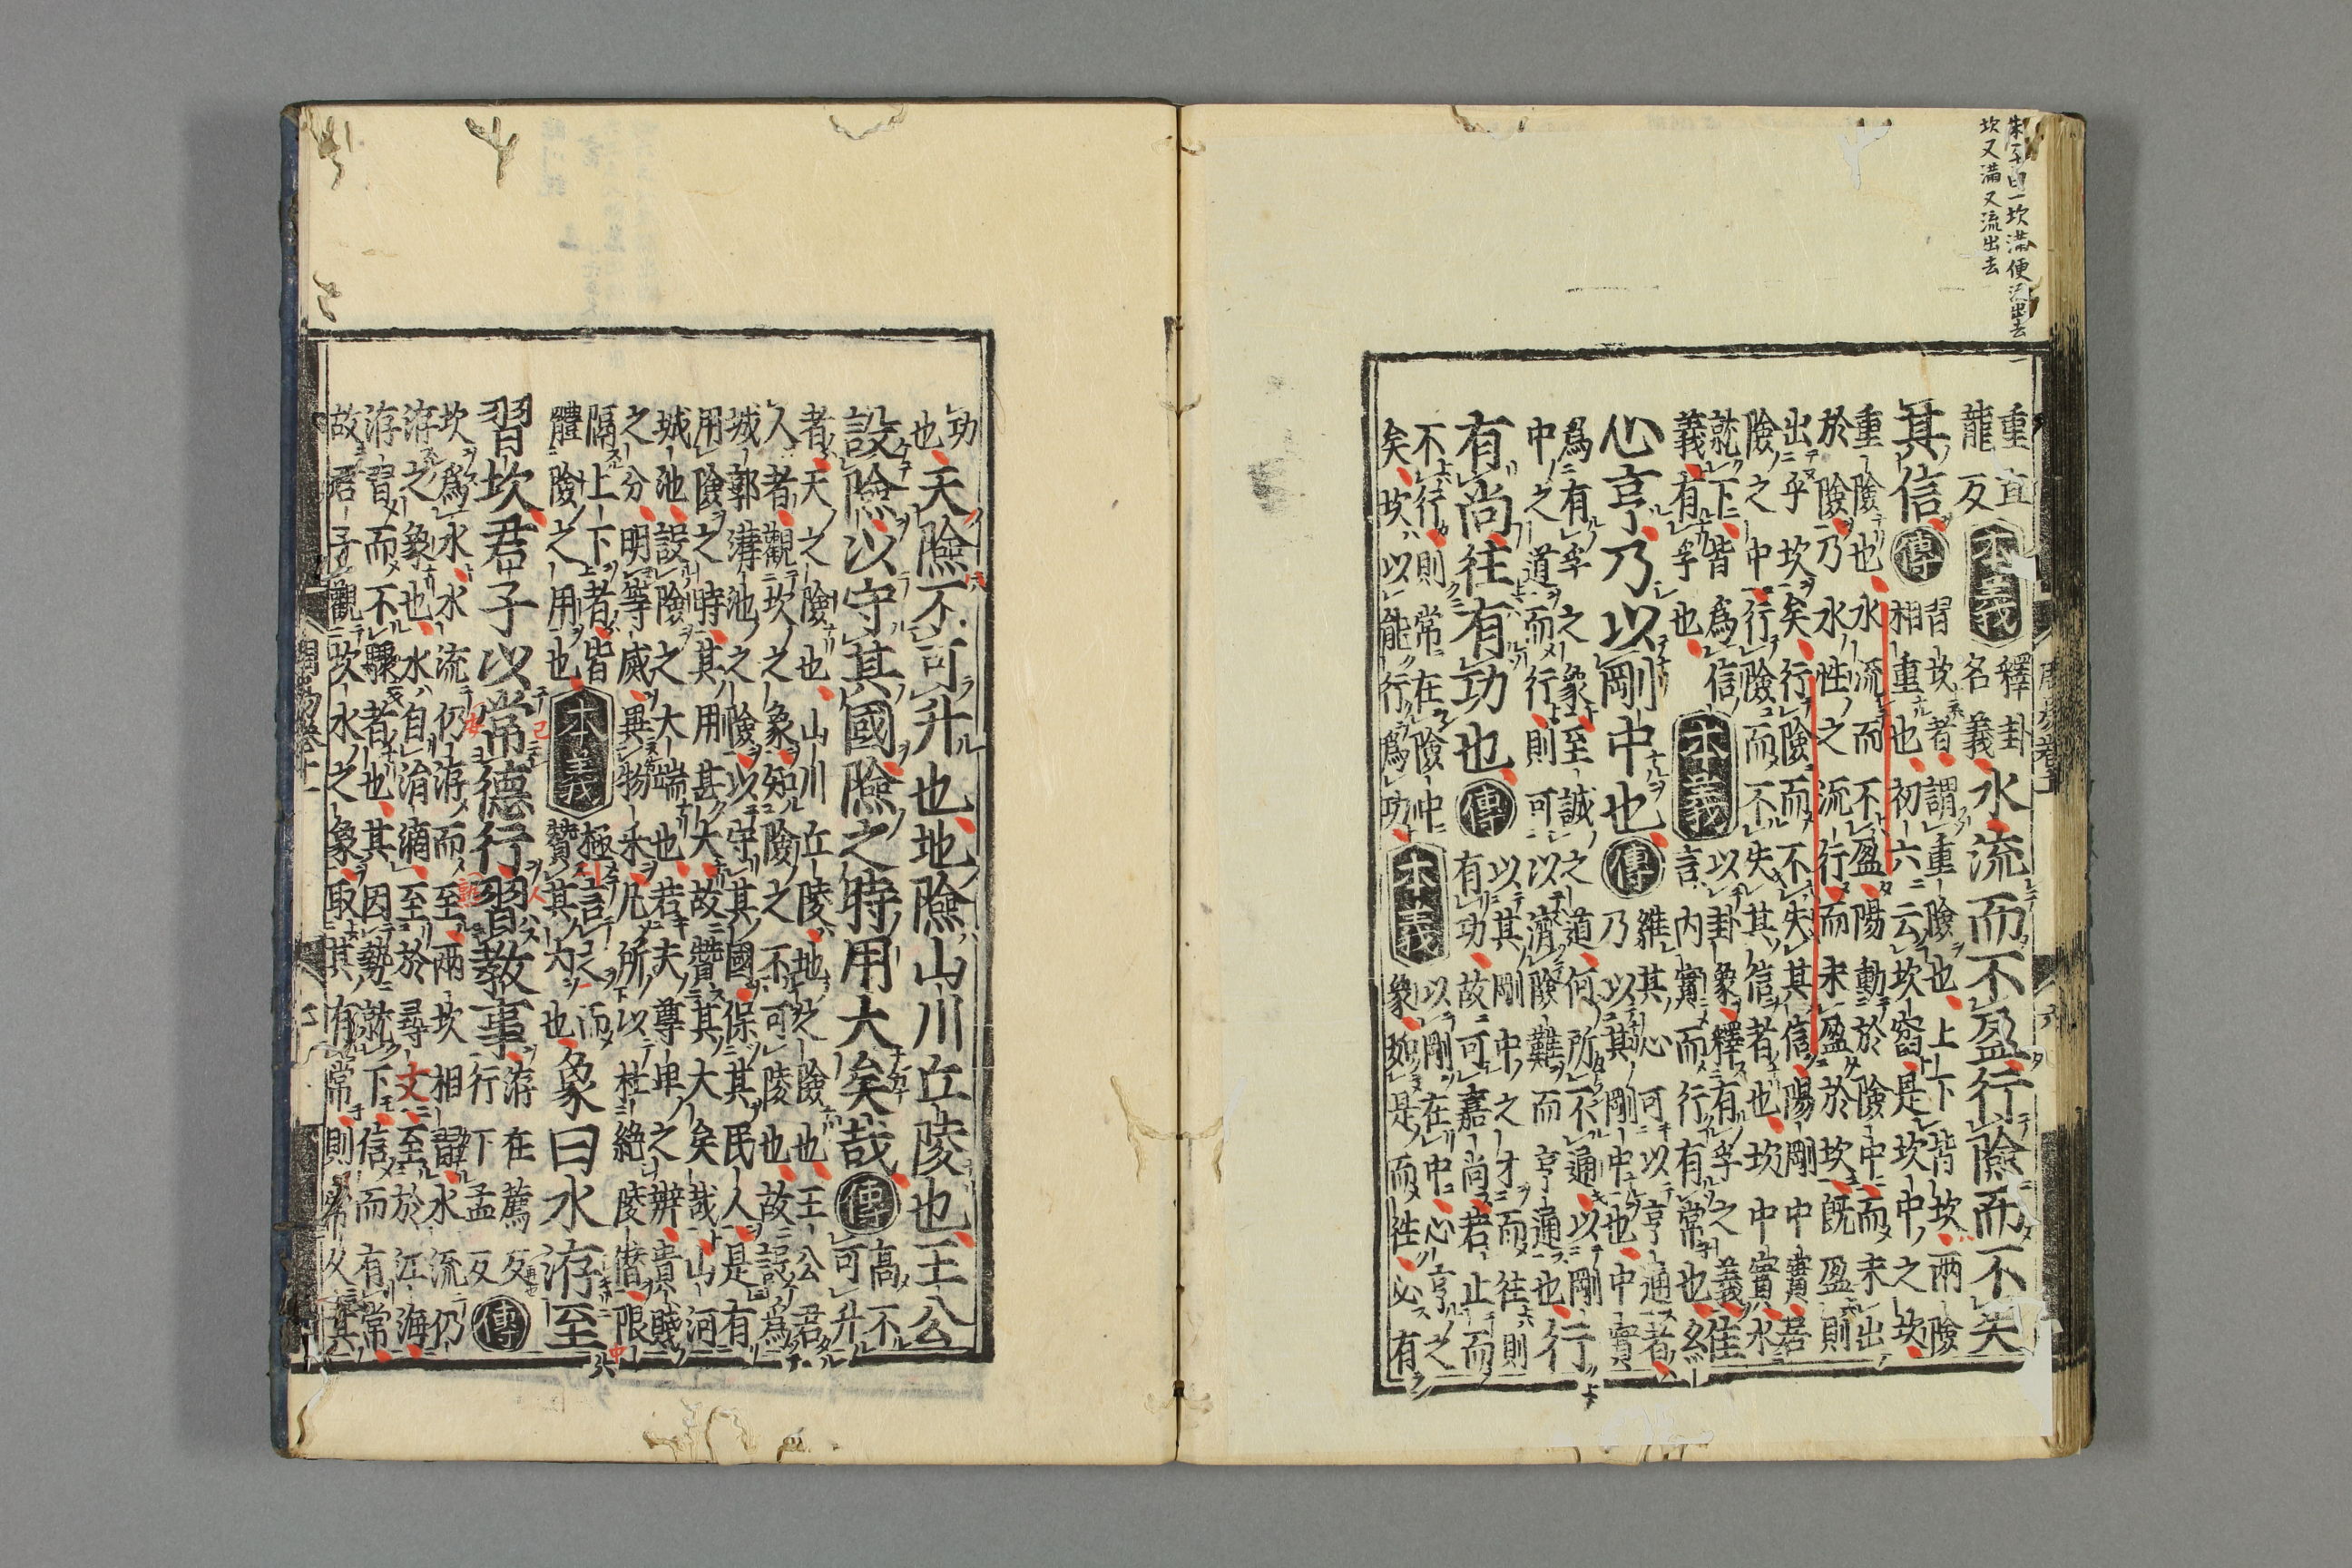 朱子曰一坎滿便流出去
坎又滿又流出去
重直
龍反
本義
釋卦
名義
水流而不盈行險而不失
其信
傳
習坎者謂重險也上下皆坎兩險
相重也初六云坎窞是坎中之坎
重險也水流而不盈陽動於險中而未出
於險乃水性之流行而未盈於坎既盈則
出乎坎矣行險而不失其信陽剛中實居
險之中行險而不失其信者也坎中實水
就下皆爲信
義有孚也
本義
以卦象釋有孚之義
言內實而行有常也
維
心亨乃以剛中也
傳
維其心可以亨通者
乃以其剛中也中實
爲有孚之象至誠之道何所不通以剛
中之道而行則可以濟險難而亨通也
行
有尚往有功也
傳
以其剛中之才而往則
有功故可嘉尚若止而
不行則常在險中
矣坎以能行爲功
本義
以剛在中心亨之
象如是而往必有
功
也
天險不可升也地險山川丘陵也王公
設險以守其國險之時用大矣哉
傳
高不
可升
者天之險也山川丘陵地之險也王公君
人者觀坎之象知險之不可陵也故設爲
城郭溝池之險以守其國保其民人是有
用險之時其用甚大故贊其大矣哉山河
城池設險之大端也若夫尊卑之辨貴賤
之分明等威異物采凡所以杜絕陵僭限
隔上下者皆
體險之用也
本義
極言之而
贊其大也
象曰水洊至
習坎君子以常德行習教事
洊在薦反
行下孟反
傳
坎爲水水流仍洊而至兩坎相習水流仍
洊之象也水自涓滴至於尋丈至於江海
洊習而不驟者也其因勢就下信而有常
故君子觀坎水之象取其有常則常久其